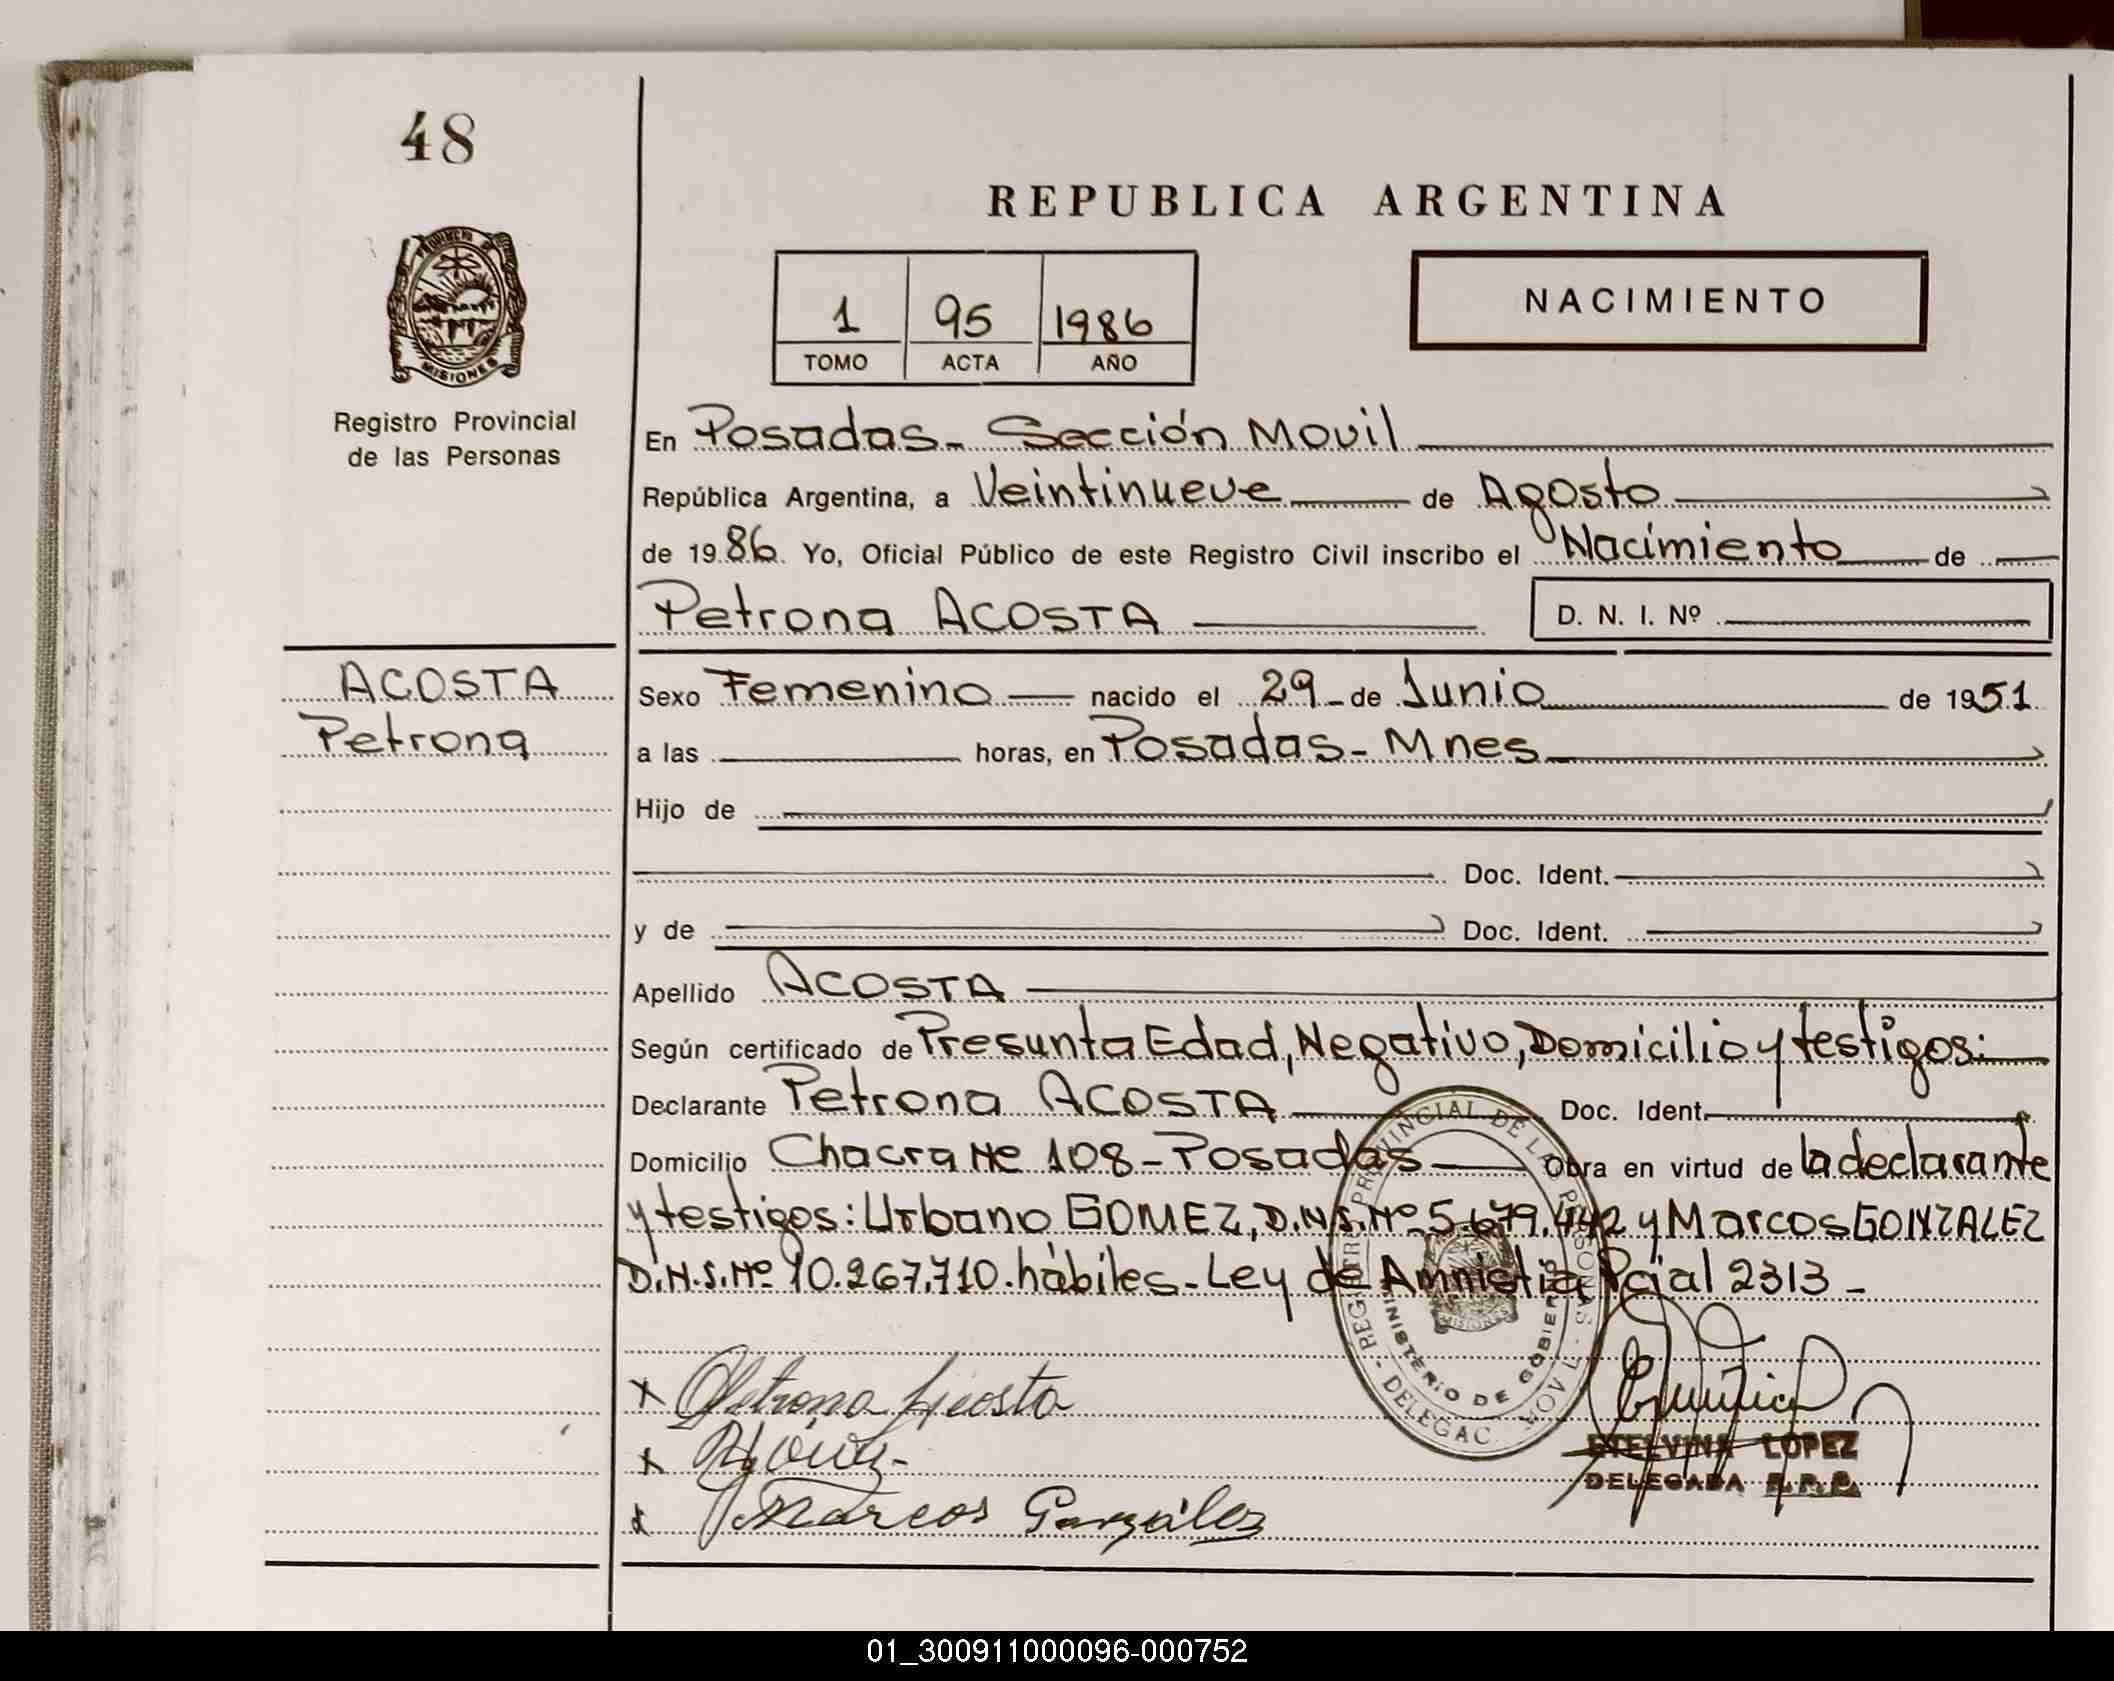 48
REPUBLICA ARGENTINA
NACIMIENTO
1 95 1986
TOMO ACTA AÑO
PROVINCIA DE
MISIONES
Registro Provincial
de las Personas
En Posadas - Sección Movil
República Argentina, a Veintinueve de Agosto
de 1986. Yo, Oficial Público de este Registro Civil inscribo el Nacimiento de
Petrona ACOSTA D. N. I. Nº
ACOSTA
Petrona
Sexo Femenino nacido el 29 de Junio de 1951
a las horas, en Posadas - Mnes
Hijo de
Doc. Ident.
y de Doc. Ident.
Apellido ACOSTA
Según certificado de Presunta Edad, Negativo, Domicilio y testigos:
Declarante Petrona ACOSTA Doc. Ident.
Domicilio Chacra Nº 108 - Posadas Obra en virtud de la declarante
y testigos: Urbano GOMEZ, D.N.I. Nº 5.679.442 y Marcos GONZALEZ
D.N.I. Nº 10.267.710. hábiles - Ley de Amnistia Pcial 2313 -
REGISTRO PROVINCIAL DE LAS PERSONAS - DELEGAC. MOVIL
MINISTERIO DE GOBIERNO
MISIONES
x Petrona Acosta
x
x Marcos González
ETELVINA LOPEZ
DELEGADA R.P.P.
01_300911000096-000752